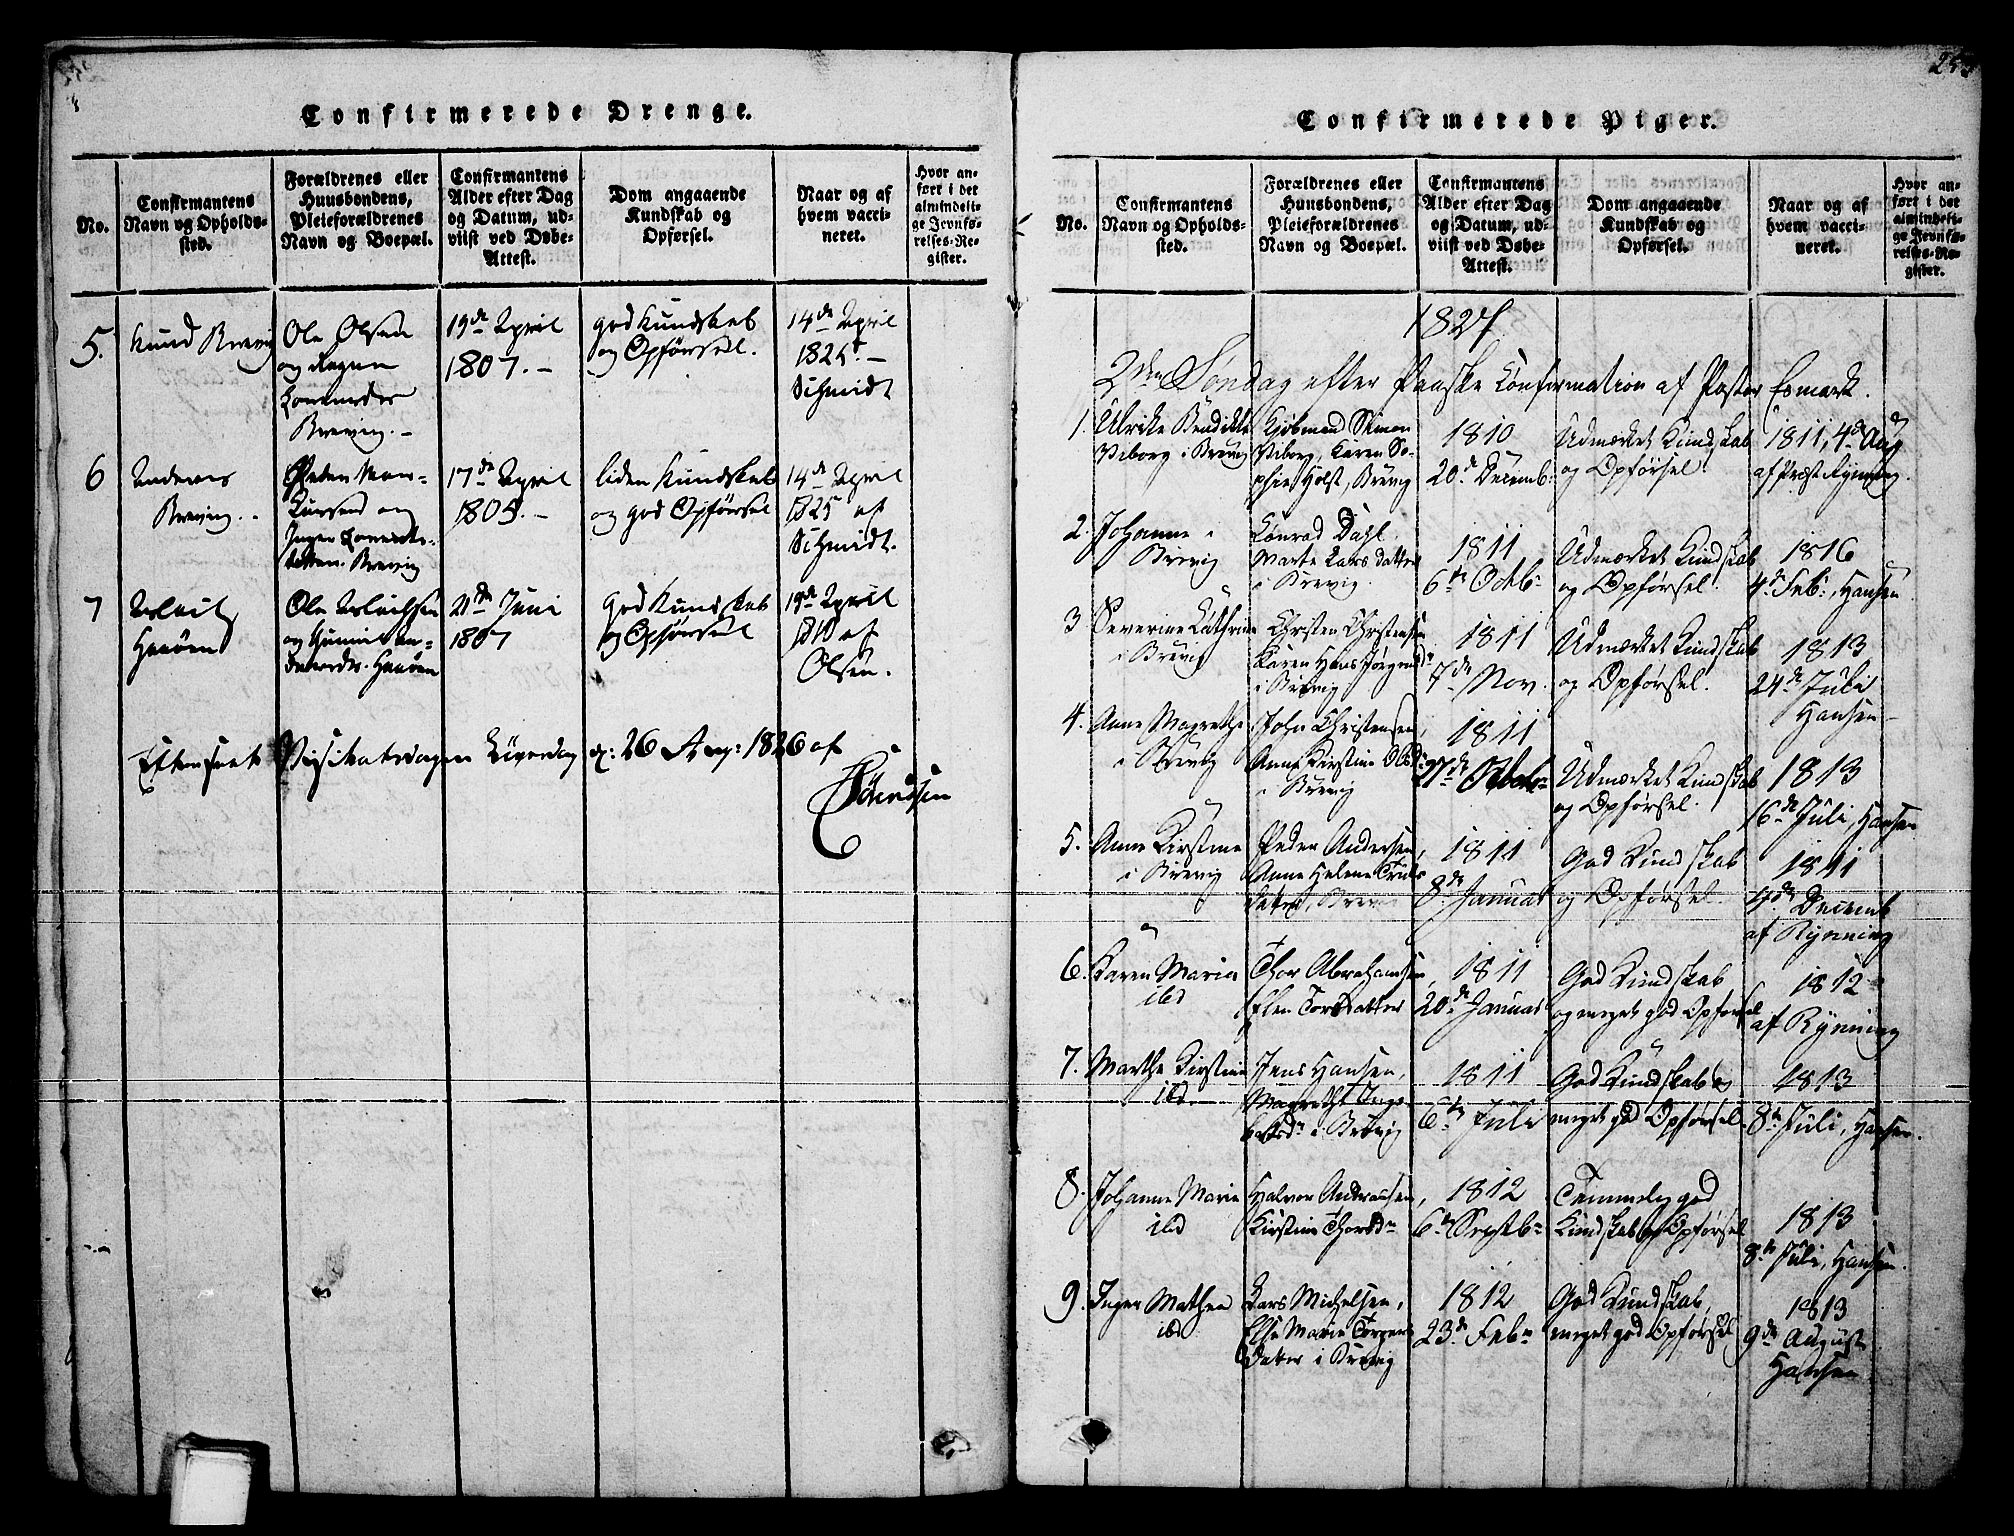 Confirmerede Drenge.
No.
Confirmantens
Navn og Opholds-
sted.
Forældrenes eller
Huusbondens,
Pleieforældrenes
Navn og Boepæl.
Confirmantens
Alder efter Dag
og Datum, ud-
viist ved Døbe-
Attest.
Dom angaaende
Kundskab og
Opførsel.
Naar og af
hvem vacci-
neret.
Hvor an-
ført i det
almindeli-
ge Jevnfø-
relses-Re-
gister.
5.
Knud Brevig
Ole Olsen
og
Brevig.
19de April
1807.
god Kundskab
og Opførsel.
14de April
1825.
Schmidt
6
Anders
Brevig.
Peder
og
Inger
Brevig
17de April
1805.
liden Kundskab
og god Opførsel
14de April
1825 af
Schmidt.
7
Ole
og
21de Juni
1807
god Kundskab
og Opførsel
19de April
1810 af
Olsen.
Visitatsdagen Løverdag d: 26 Aug: 1826 af
Confirmerede Piger.
No.
Confirmantens
Navn og Opholds-
sted.
Forældrenes eller
Huusbondens,
Pleieforældrenes
Navn og Boepæl.
Confirmantens
Alder efter Dag
og Datum, ud-
viist ved Døbe-
Attest.
Dom angaaende
Kundskab og
Opførsel.
Naar og af
hvem vacci-
neret.
Hvor an-
ført i det
almindeli-
ge Jevnfø-
relses-Re-
gister.
1827
2den Søndag efter Paaske Confirmation af Pastor Esmark.
1.
Ulrike Bendikte
Viborg i Brevig
Kjøbmand Simon
Viborg, Karen So-
phie Holst, Brevig
1810
20de Decemb:
Udmærket Kundskab
og Opførsel
1811, 4de Aug
af Præst Rynning.
2.
Johanne i
Brevig
Conrad Dahl
Marte Lars datter
i Brevig.
1811
6te Octb:
Udmærket Kundskab
og Opførsel.
1816
4de Feb:, Hansen.
3
Severine Cathrine
i Brevig
Christen Christensen
Karen Hans Jørgensdr
i Brevig
1811
7de Nov.
Udmærket Kundskab
og Opførsel.
1813
24de Juli
Hansen
4.
Anne Magrethe
i Brevig
John Christensen,
Anne Kirstine Olsd:
i Brevig
1811
27de Octobr
Udmærket Kundskab
og Opførsel.
1813
16de Juli, Hansen
5.
Anne Kirstine
i Brevig
Peder Andersen,
Anne Helene Truls
datter, Brevig
1811
8de Januar
God Kundskab
og Opførsel.
1811
4de Decemb
af Rynning
6.
Karen Maria
ibd
Thor Abrahamsen,
Elen Torsdatter
1811
20de Januar
God Kundskab
og meget god Opførsel
1812
af Rynning
7.
Marthe Kirstine
ibd.
Jens Hansen,
Magrethe Inge-
i Brevig
1811
6te Juli
God Kundskab og
meget god Opførsel.
1813
8de Juli, Hansen.
8.
Johanne Marie
ibd
Halvor Andreasen,
Kirstine Thorsdr
1812
6te Septbr
Temmelig god
Kundskab og Opførsel
1813
8de Juli, Hansen.
9.
Inger Mathea
ibd
Lars Michelsen,
Else Marie Torgers
datter i Brevig
1812
23de Febr
God Kundskab,
meget god Opførsel
1813
9de August
Hansen